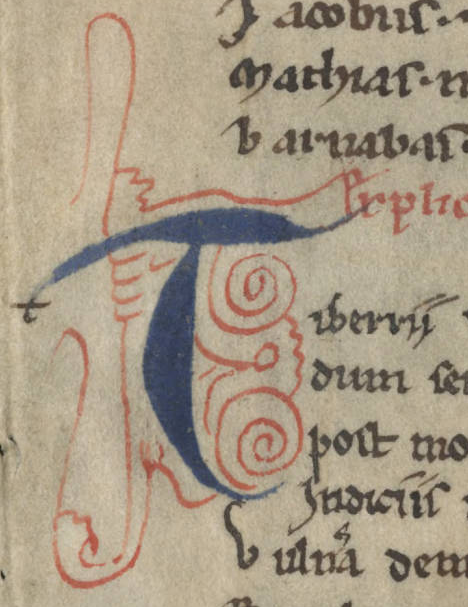 Jacobus.
Mathias.
Barnabas
Explic
t
Tiberrij
dum se
post mo
Indiciis
Vulnera dem